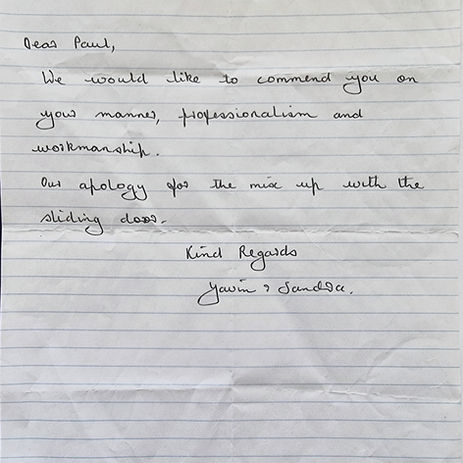 Dear Paul,
We would like to commend you on
your manner, professionalism and
workmanship.
Our apology for the mix up with the
sliding door.
Kind Regards
Yavin & Sandra.